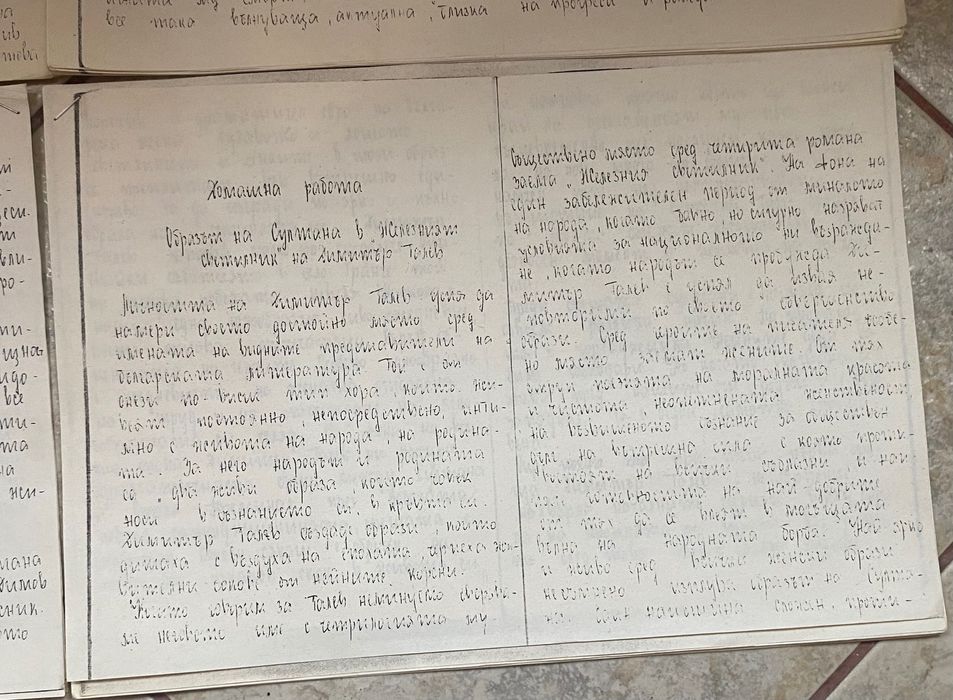 все така вълнуваща, актуална, близка на прогреса и
Домашна работа
Образът на Султана в "Железният
светилник" на Димитър Талев
Личността на Димитър Талев успя да
намери своето достойно място сред
имената на видните представители на
българската литература. Той е от
онези по-висш тип хора, които жи-
веят постоянно, непосредствено, инти-
мно с живота на народа, на родина-
та. За него народът и родината
са "два живи образа, които човек
носи в съзнанието си, в кръвта си.
Димитър Талев създаде образи, които
дишаха с въздуха на епохата, черпеха жи-
вителни сокове от нейните корени.
Когато говорим за Талев неминуемо свързва-
ме неговото име с тетралогията му.
съществено място сред четирите романа
заема "Железния светилник". На фона на
един забележителен период от миналото
на народа, когато бавно, но сигурно назряват
условията за националното ни възражда-
не, когато народът се пробужда Ди-
митър Талев е успял да извая не-
повторими по своето съвършенство
образи. Сред героите на писателя особе-
но място заемат жените. От тях
струи поезията на моралната красота
и чистота, неопитнената женственост,
на възвишеното съзнание за обществен
дълг, на вътрешна сила с която проти-
востоят на всички съблазни и
готовността на най-добрите
от тях да се влеят в могъщата
вълна на народната борба. Най-ярко
и живо сред всички женски образи
несъмнено изпъква образът на Султа-
на.